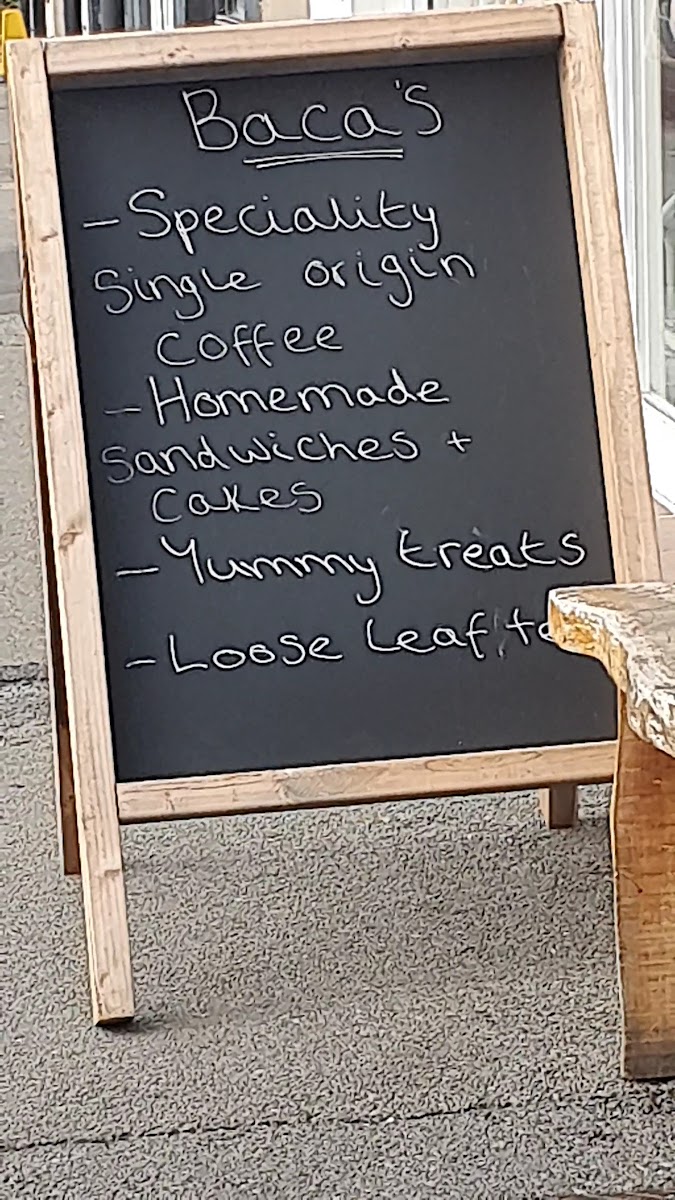 Baca's
- Speciality
Single origin
coffee
- Homemade
Sandwiches +
Cakes
- Yummy treats
- Loose Leaf